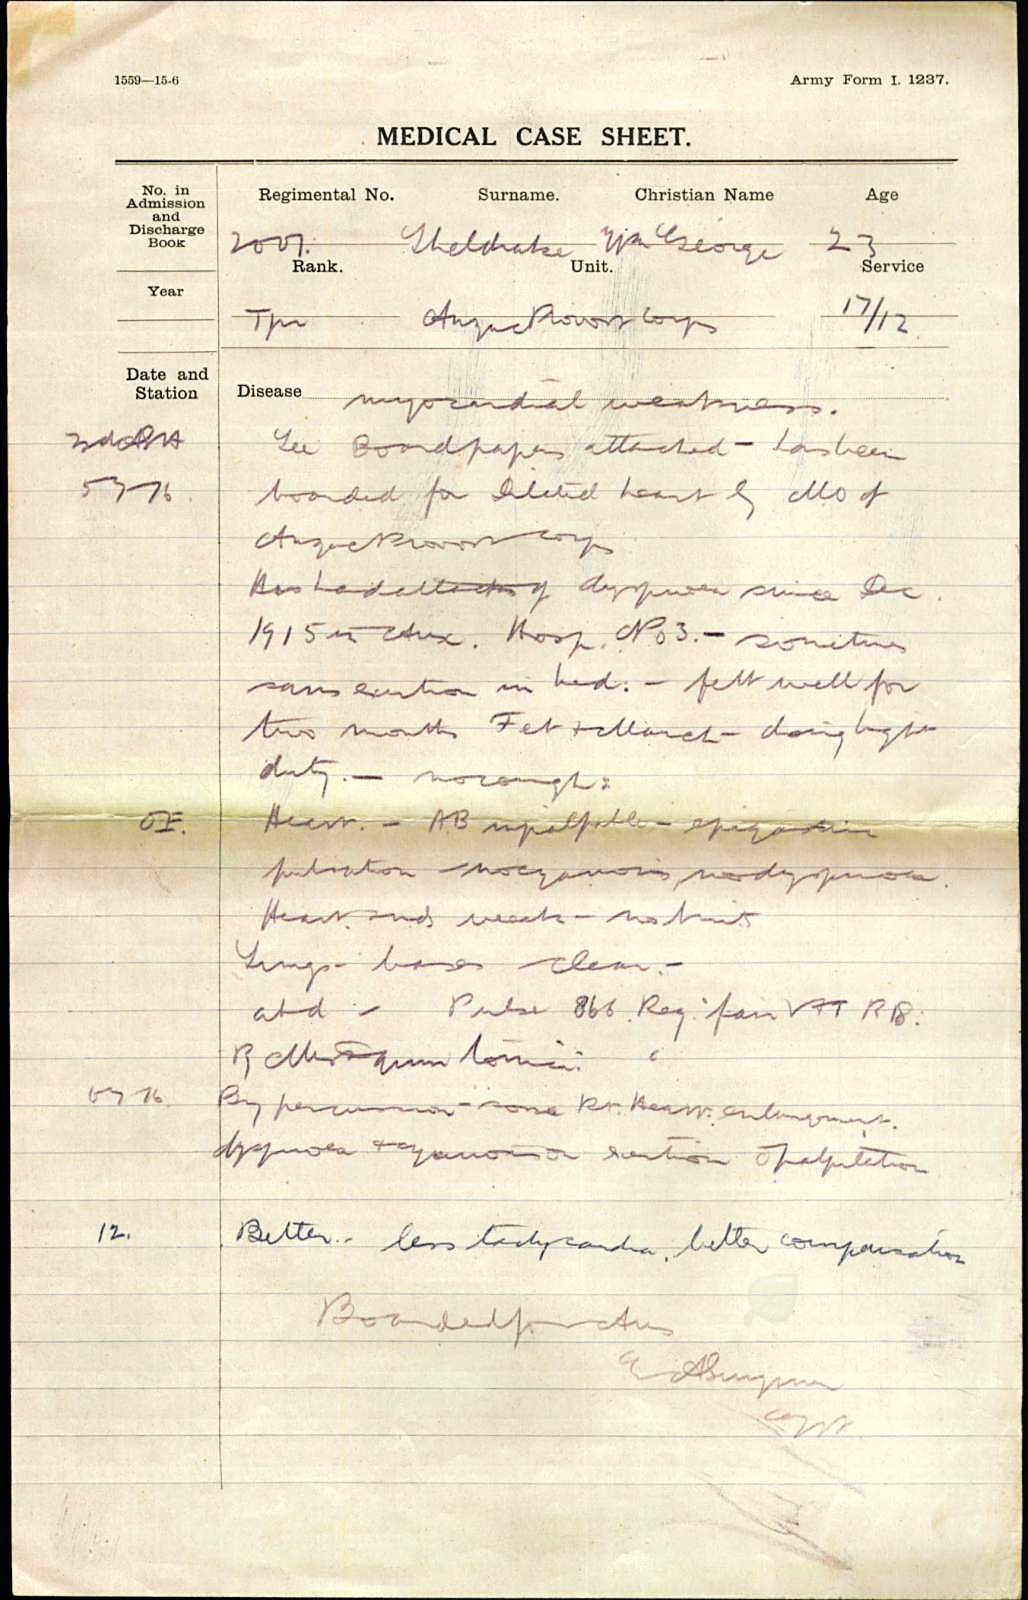 1559—15-6
Army Form I. 1237.
MEDICAL CASE SHEET.
No. in Admission and Discharge Book
Regimental No. Surname. Christian Name Age
2007. Sheldrake Wm George 23
Rank. Unit. Service
Year
Tpr Anzac Provost Corps 17/12
Date and Station
Disease myocardial weakness.
2nd AGH See Board papers attached – has been
5 7 16. boarded for dilated heart by MO of
Anzac Provost Corps
Has had attacks of dyspnoea since Dec.
1915 in Aux. Hosp. No 3. – sometimes
sans exertion in bed. – felt well for
two months Feb + March – doing light
duty. – no cough:
OE. Heart. – AB impalpable – epigastric
pulsation – no cyanosis, no dyspnoea.
Heart snds weak – no bruits
Lungs – bases clear. –
abd – Pulse Reg. fair
By percussion – some Rt. Heart. enlargment.
dyspnoea + cyanosis on exertion palpitation
12. Better. – less tachycardia, better compensation
Boarded for Aus
Capt.